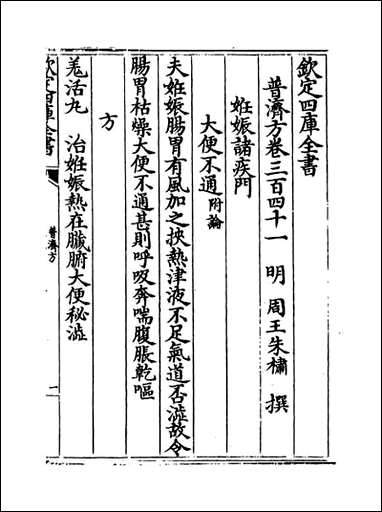 欽定四庫全書
普濟方卷三百四十一　明　周王朱橚　撰
姙娠諸疾門
大便不通附論
夫姙娠腸胃有風加之挾熱津液不足氣道否澁故令
腸胃枯燥大便不通甚則呼吸奔喘腹脹乾嘔
方
羗活丸　治姙娠熱在臟腑大便秘澁
欽定四庫全書
普濟方
一